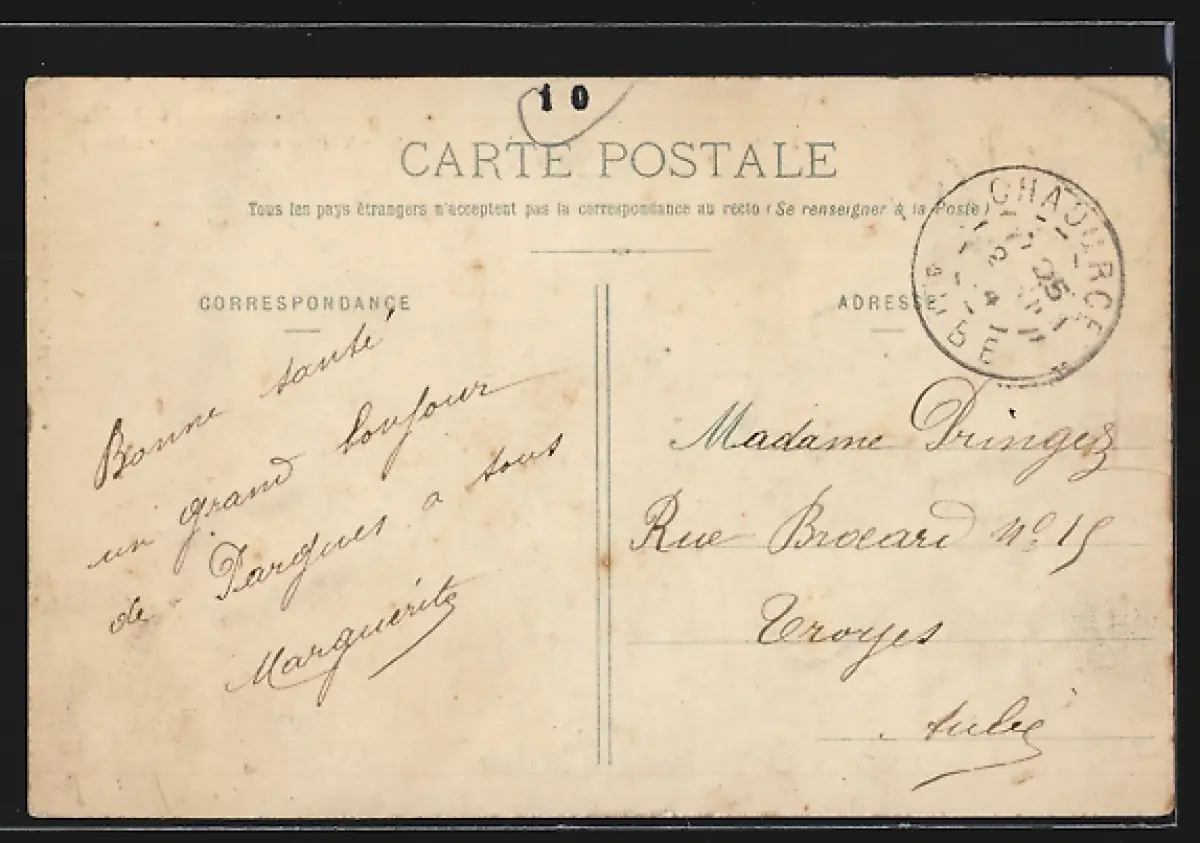 10
CARTE POSTALE
Tous les pays étrangers n'acceptent pas la correspondance au recto (Se renseigner à la Poste)
CORRESPONDANCE
Bonne santé
un grand bonjour
de Pargues a tous
Marguerite
ADRESSE
CHAOURCE
AUBE
2 4
05
Madame
Rue Brocard No 15
Troyes
Aube